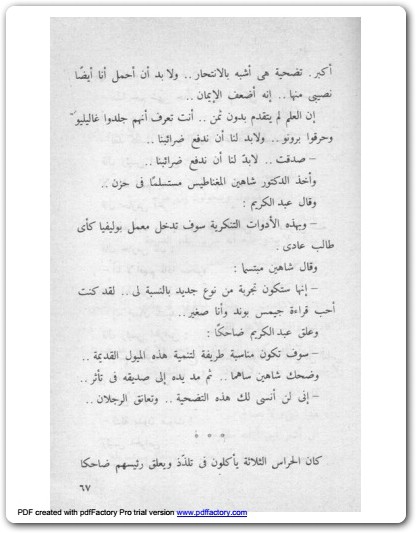 أكبر. تضحية هى أشبه بالانتحار .. ولا بد أن أحمل أنا أيضًا
نصيبى منها .. إنه أضعف الإيمان ..
إن العلم لم يتقدم بدون ثمن .. أنت تعرف أنهم جلدوا غاليليو
وحرقوا برونو .. ولابد لنا أن ندفع ضرائبنا ..
– صدقت .. لابدّ لنا أن ندفع ضرائبنا ..
وأخذ الدكتور شاهين المغناطيس مستسلمًا فى حزن ..
وقال عبد الكريم :
– وبهذه الأدوات التنكرية سوف تدخل معمل بوليفيا كأى
طالب عادى .
وقال شاهين مبتسما :
– إنها ستكون تجربة من نوع جديد بالنسبة لى .. لقد كنت
أحب قراءة جيمس بوند وأنا صغير ..
وعلق عبد الكريم ضاحكًا :
– سوف تكون مناسبة طريفة لتنمية هذه الميول القديمة ..
وضحك شاهين ساهما .. ثم مد يده إلى صديقه فى تأثر ..
– إنى لن أنسى لك هذه التضحية .. وتعانق الرجلان ..
* * *
كان الحراس الثلاثة يأكلون فى تلذّذ ويعلق رئيسهم ضاحكا
٦٧
PDF created with pdfFactory Pro trial version www.pdffactory.com